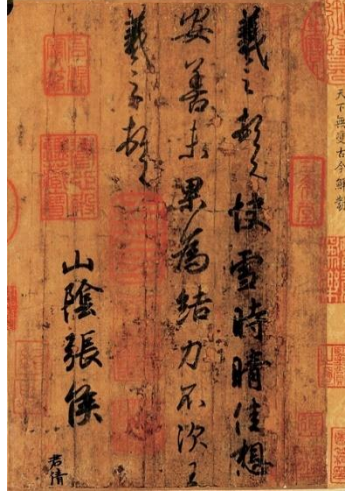 天下無雙古今鮮對
羲之頓首快雪時晴佳想
安善未果為結力不次王
羲之頓首
山陰張侯
君倩